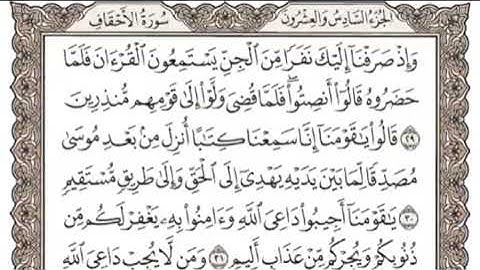 سُورَةُ الأَحْقَافِ
الجُزْءُ السَّادِسُ وَالعِشْرُونَ
وَإِذْ صَرَفْنَآ إِلَيْكَ نَفَرًا مِّنَ ٱلْجِنِّ يَسْتَمِعُونَ ٱلْقُرْءَانَ فَلَمَّا
حَضَرُوهُ قَالُوٓا۟ أَنصِتُوا۟ ۖ فَلَمَّا قُضِىَ وَلَّوْا۟ إِلَىٰ قَوْمِهِم مُّنذِرِينَ
٢٩ قَالُوا۟ يَٰقَوْمَنَآ إِنَّا سَمِعْنَا كِتَٰبًا أُنزِلَ مِنۢ بَعْدِ مُوسَىٰ
مُصَدِّقًا لِّمَا بَيْنَ يَدَيْهِ يَهْدِىٓ إِلَى ٱلْحَقِّ وَإِلَىٰ طَرِيقٍ مُّسْتَقِيمٍ
٣٠ يَٰقَوْمَنَآ أَجِيبُوا۟ دَاعِىَ ٱللَّهِ وَءَامِنُوا۟ بِهِۦ يَغْفِرْ لَكُم مِّن
ذُنُوبِكُمْ وَيُجِرْكُم مِّنْ عَذَابٍ أَلِيمٍ ٣١ وَمَن لَّا يُجِبْ دَاعِىَ ٱللَّهِ